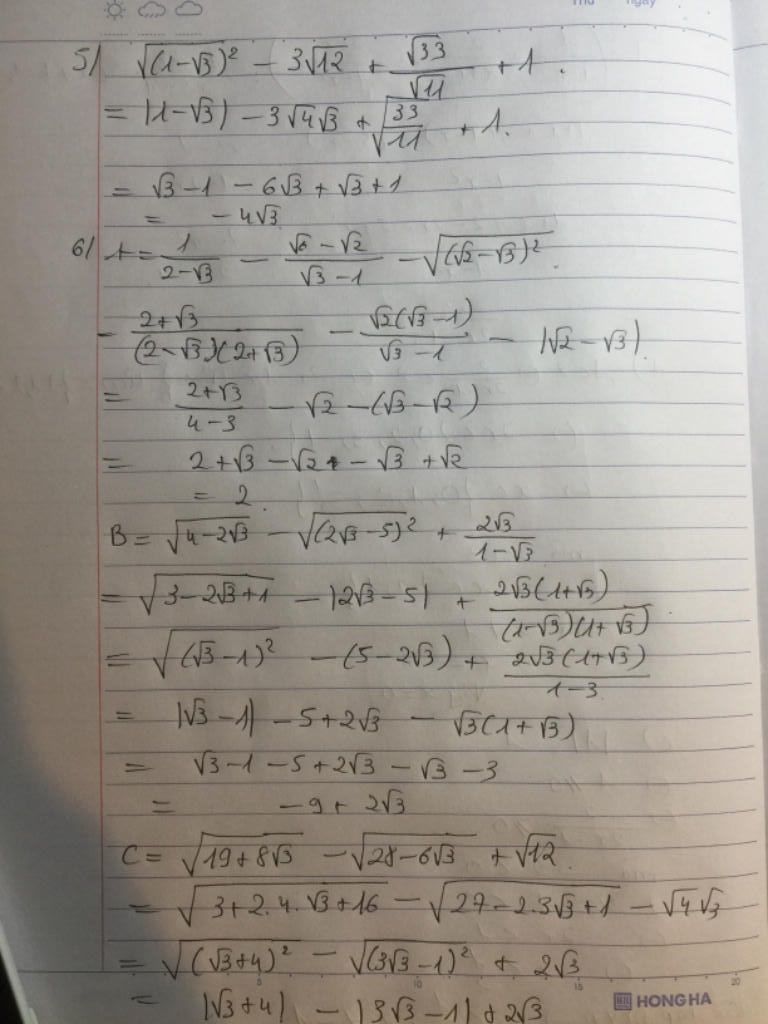 Thu ngày
5/ √(1-√3)² - 3√12 + √33/√11 + 1.
= |1-√3| - 3√4√3 + √(33/11) + 1.
= √3 - 1 - 6√3 + √3 + 1
= - 4√3
6/ A = 1/(2-√3) - (√6 - √2)/(√3 - 1) - √((√2 - √3)²).
- (2+√3)/((2-√3)(2+√3)) - √2(√3-1)/(√3-1) - |√2 - √3|.
= (2+√3)/(4-3) - √2 - (√3 - √2)
= 2+√3 - √2 - √3 + √2
= 2.
B = √(4-2√3) - √(2√3-5)² + 2√3/(1-√3)
= √(3-2√3+1) - |2√3-5| + 2√3(1+√3)/((1-√3)(1+√3))
= √((√3-1)²) - (5-2√3) + 2√3(1+√3)/(1-3)
= |√3-1| - 5+2√3 - √3(1+√3)
= √3-1-5+2√3-√3-3
= -9+2√3
C = √(19+8√3) - √(28-6√3) + √12.
= √(3+2.4.√3+16) - √(27-2.3√3+1) - √4√3
= √((√3+4)²) - √((3√3-1)²) + 2√3
= |√3+4| - |3√3-1| + 2√3
5 10 15 20
HONG HA